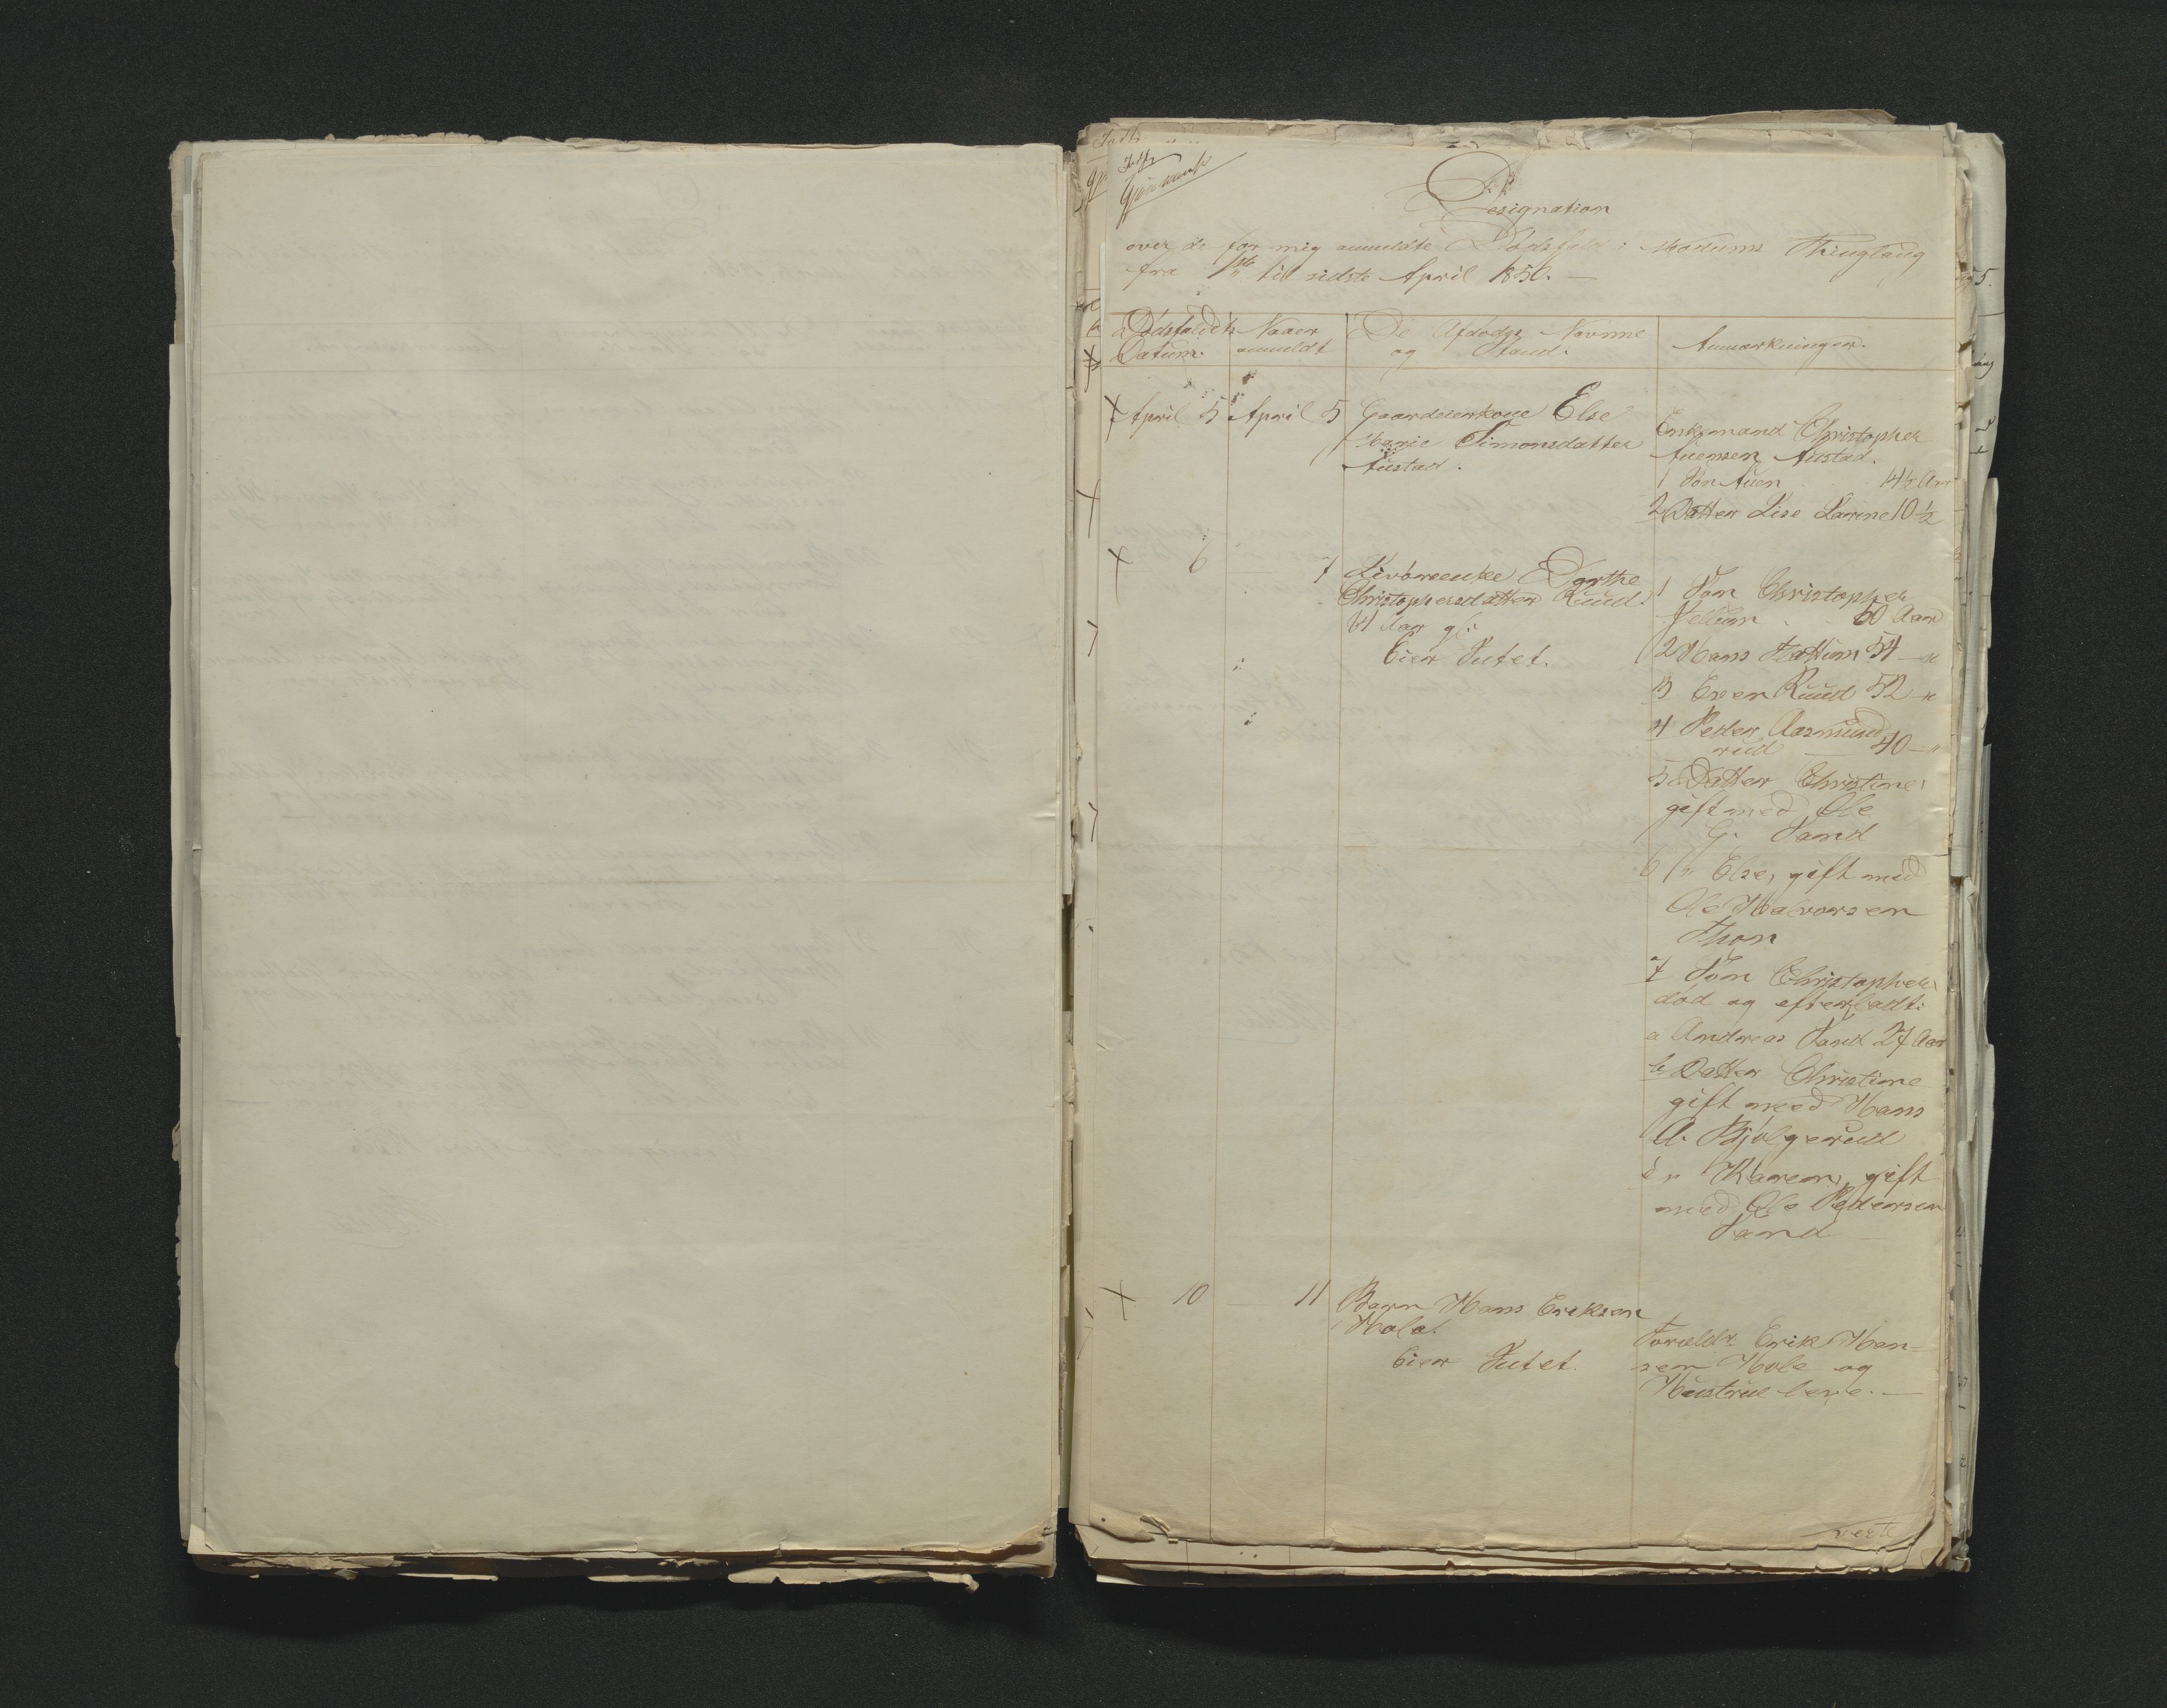 Designation
over de for mig anmeldte Dødsfald i Modums Thinglaug
fra 1ste til sidste April 1850. —
Dødsfaldets Datum.
Naar anmeldt
De Afdødes Navne og Stand.
Anmærkninger.
April 5 April 5 Gaardeierkone Else
Marie Simonsdatter
Austad.
Enkemand Christopher
Auensen Austad.
1 Søn Auen 14½ Aar
2 Datter Lise Karine 10½
6 — 7 Livøreenke Dorthe
Christophersdatter Ruud.
81 Aar gl:
Eier Intet.
1 Søn Christopher
60 Aar
2 Hans 54 — "
3 Even Ruud 52 — "
4 Peder Aasmund
rud — 40 — "
5 Datter Christine,
gift med Ole
G. Sand
6 " Else, gift med
Ole Halvorsen
Thon
7 Søn Christopher,
død og efterladt:
a Andreas Sand 27 Aar
b Datter Christine
gift med Hans
A. Bjølgerud
c " Karen, gift
med Ole Pedersen
Sand
10 — 11 Barn Hans Eriksen
Hole.
Eier Intet.
Forældr. Erik Han-
sen Hole og
Hustrue leve. —
verte